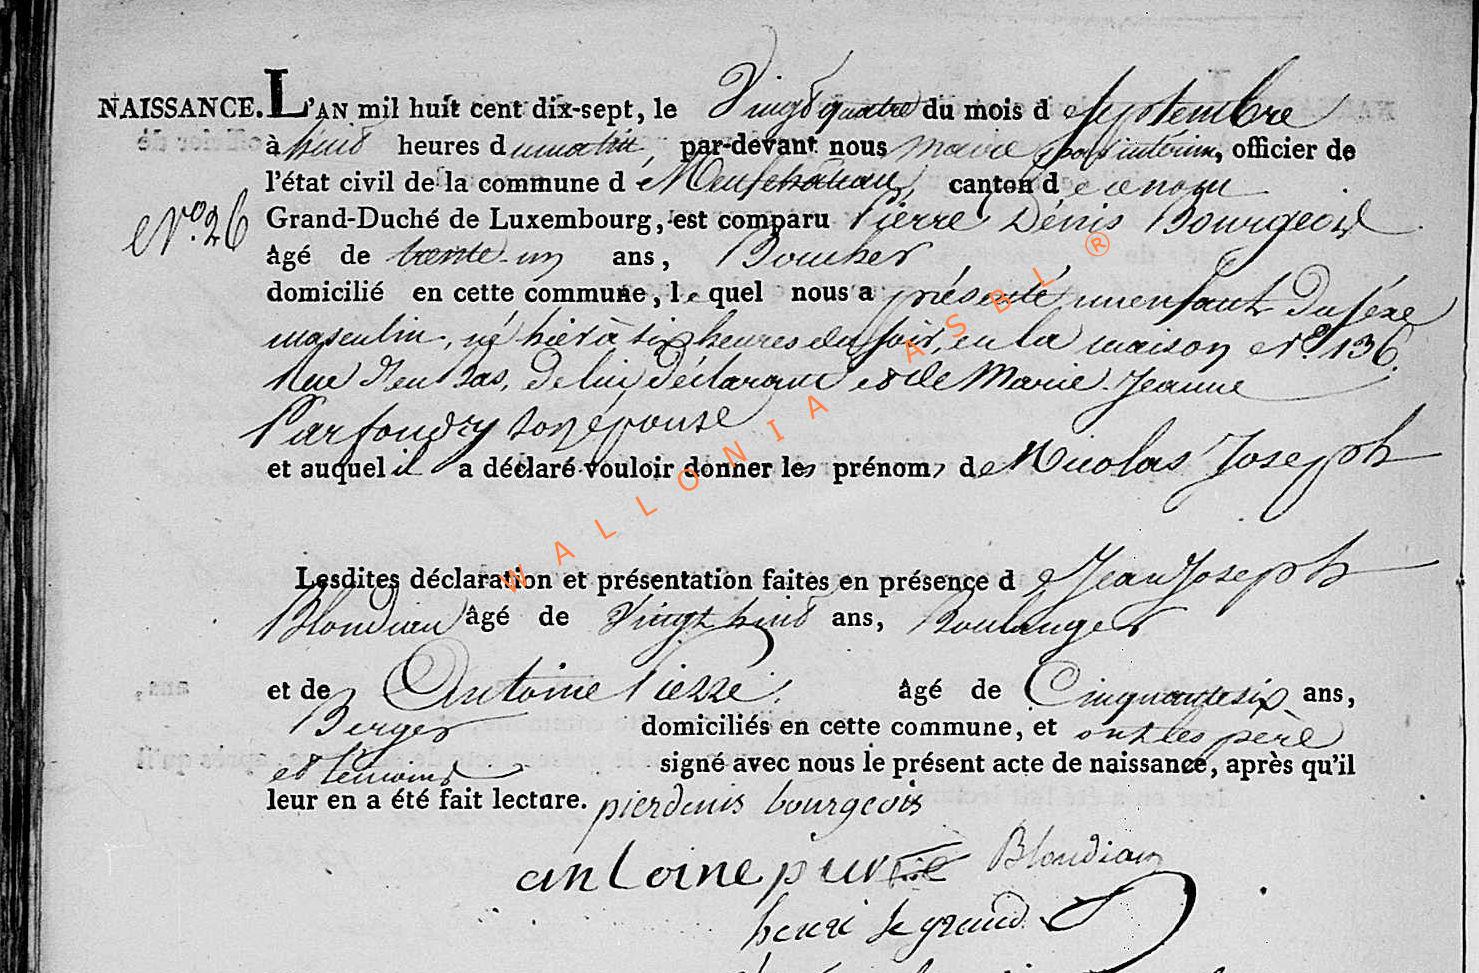 NAISSANCE. L'AN mil huit cent dix-sept, le Vingt quatre du mois de Septembre
à huit heures du matin, par-devant nous maire par intérim, officier de
l'état civil de la commune de Neufchateau, canton d
Grand-Duché de Luxembourg, est comparu Pierre Dénis Bourgeois
N.o 26
âgé de trente-un ans, Boucher
domicilié en cette commune, lequel nous a présenté un enfant du séxe
masculin, né hier à six heures du soir, en la maison No. 136.
Rue du Bas, de lui déclarant et de Marie Jeanne
Parfondry son épouse
et auquel il a déclaré vouloir donner les prénoms de Nicolas Joseph
WALLONIA ASBL ®
Lesdites déclaration et présentation faites en présence de Jean Joseph
Blondiau âgé de Vingt huit ans, Boulanger
et de Antoine Pierre, âgé de Cinquante six ans,
Berger domiciliés en cette commune, et ont les père
et temoins signé avec nous le présent acte de naissance, après qu'il
leur en a été fait lecture. pierdenis bourgeois
antoine Blondiau
henri le grand